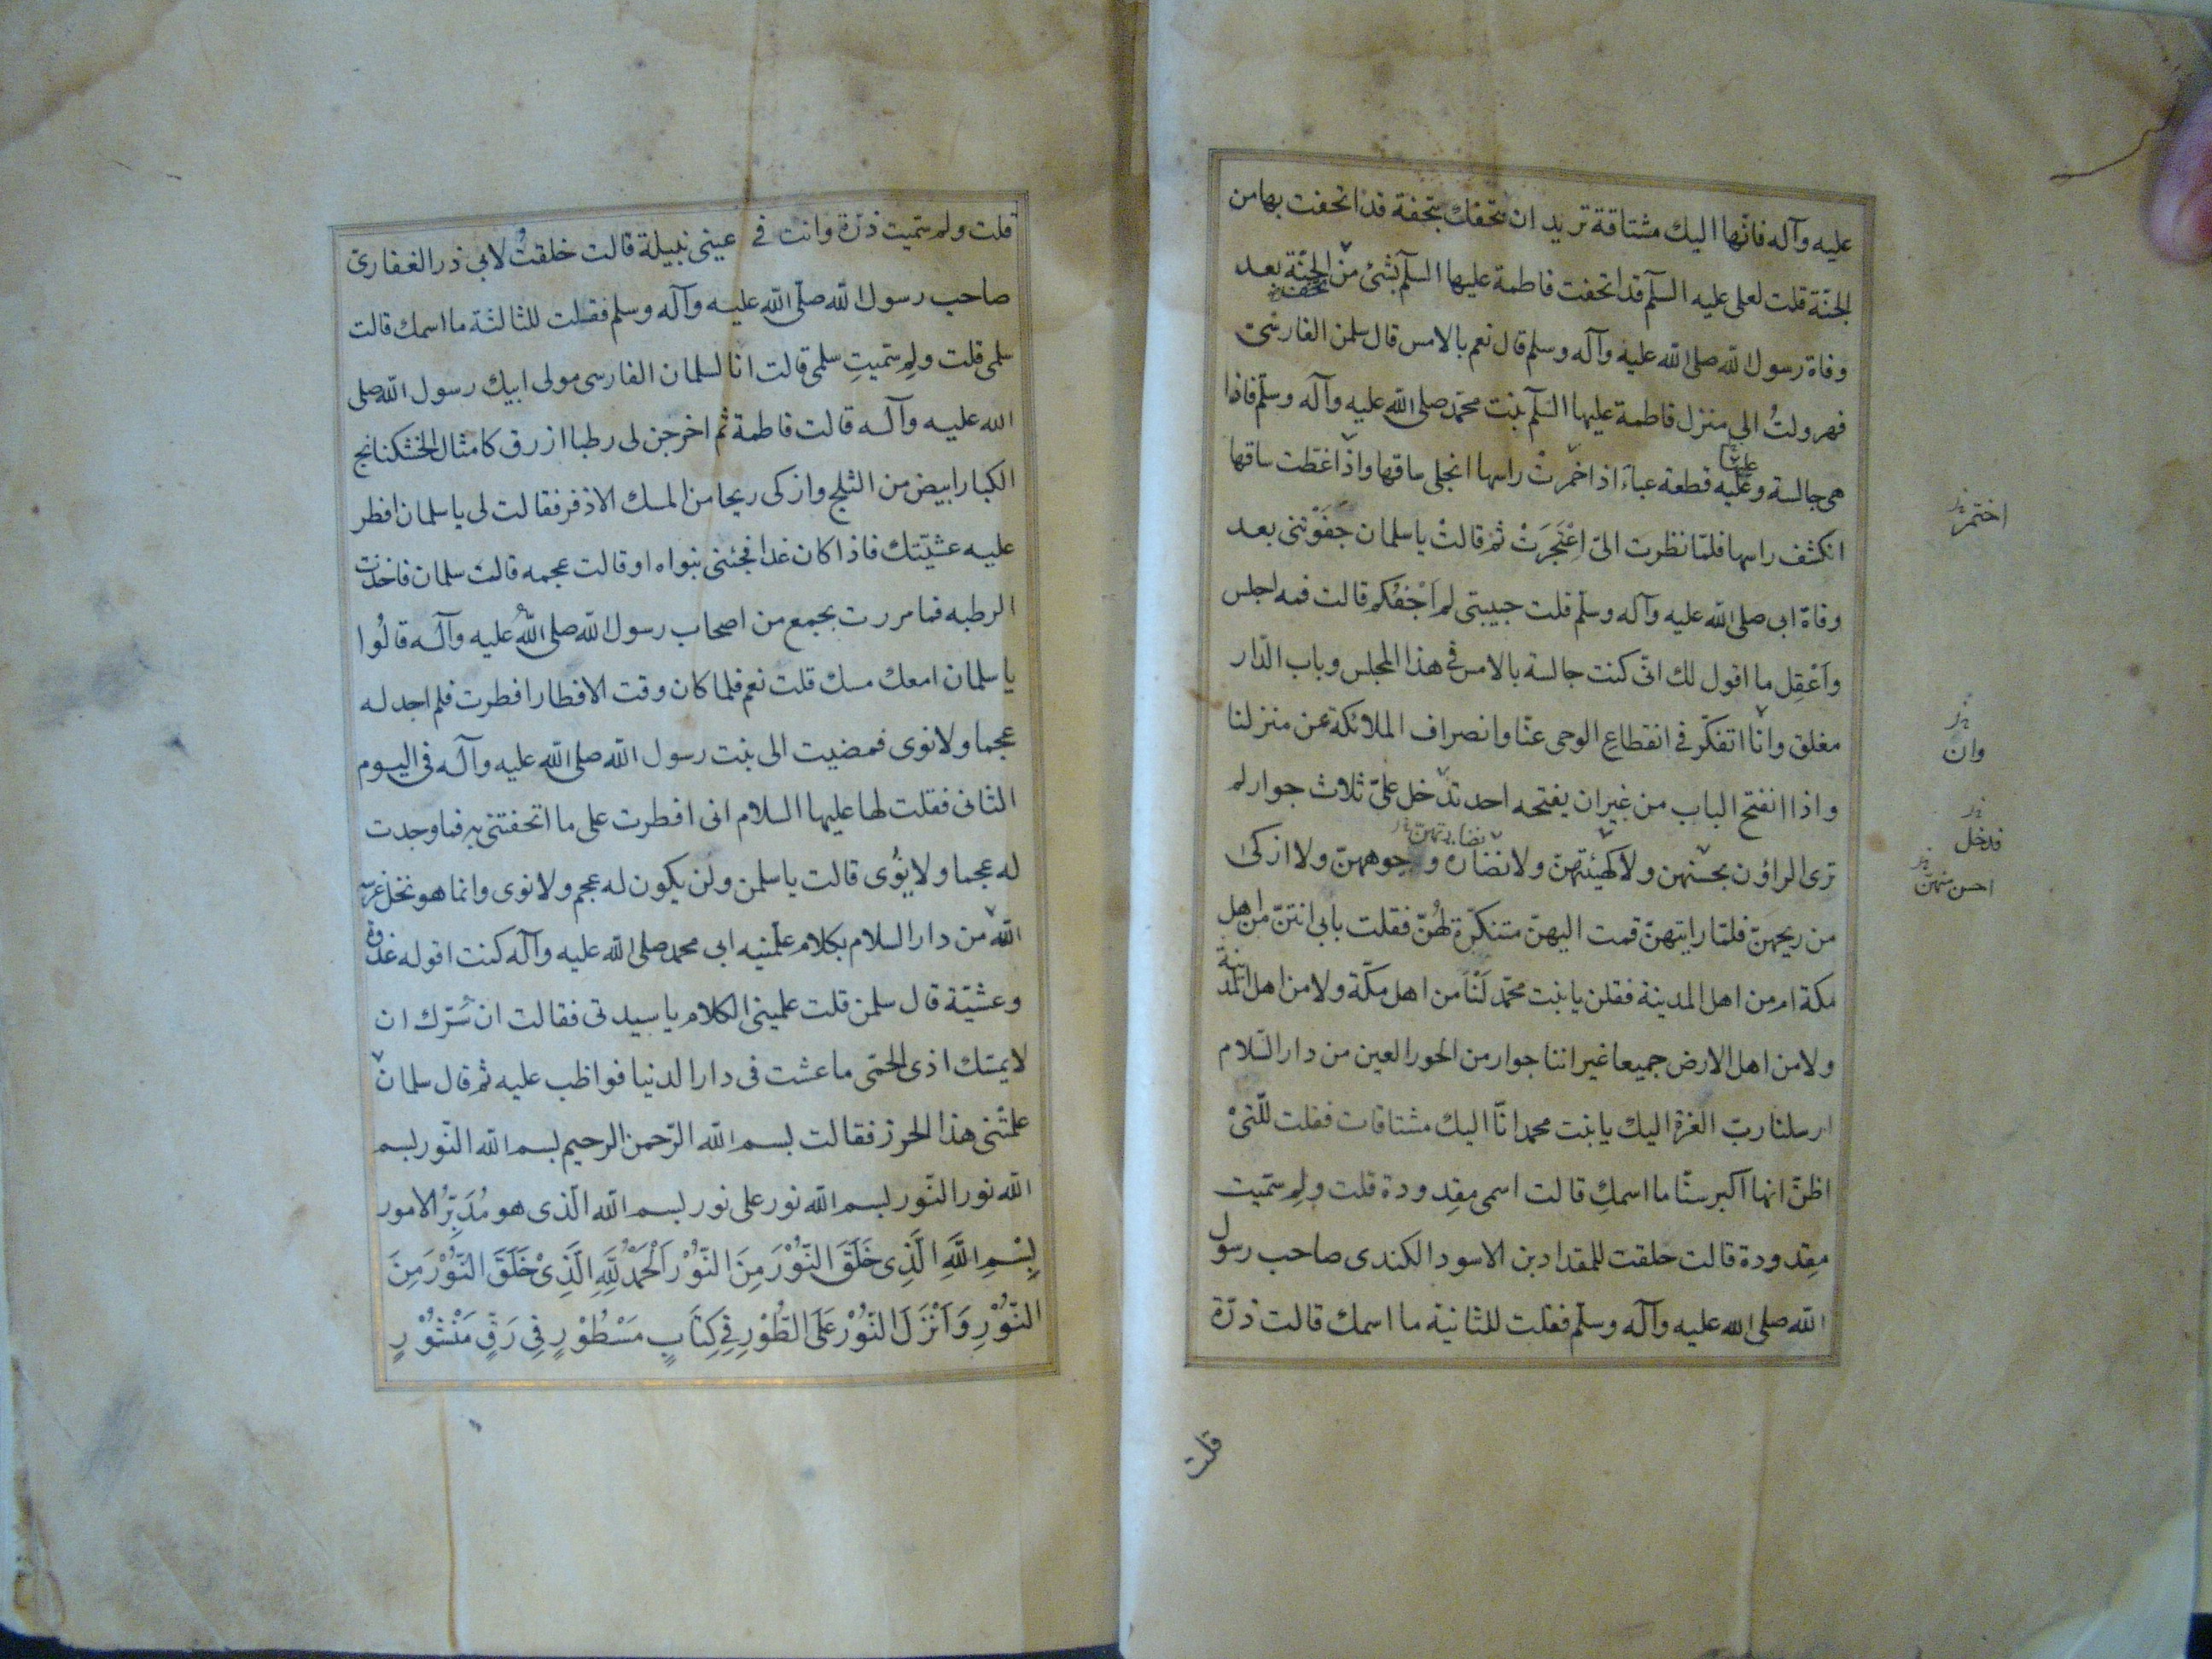 عليه وآله فانّها اليك مشتاقة تريد ان تتحفك بتحفة قد اتحفت بها من
الجنّة قلت لعلى عليه السلّم قد اتحفت فاطمة عليها السلّم بشئ من الجنّة بعد
وفاة رسول الله صلى الله عليه وآله وسلم قال نعم بالامس قال سلمن الفارسّى
فهرولتُ الى منزل فاطمة عليها السلّم بنت محمّد صلى الله عليه وآله وسلّم فاذا
هى جالسة وعليه قطعة عباء اذا خمرتْ راسها انجلى ساقها واذا غطت ساقها
عليها
انكشف راسها فلمّا نظرت الىّ اعْتَجَرَتْ ثم قالتْ يا سلمان جَفَوْتنى بعد
وفاة ابى صلى الله عليه وآله وسلّم قلت حبيبتى لم اَجْفُكم قالت فمه اجلس
واَعْقِل ما اقول لك انّى كنت جالسة بالامس فى هذا المجلس وباب الدّار
مغلق وانا اتفكّر فى انقطاع الوحى عنّا وانصراف الملائكة عن منزلنا
واذا انفتح الباب من غير ان يفتحه احد تدخل علىّ ثلاث جوار لم
ترى الراؤن بحسنهن ولا كهيئتهنّ ولا نضارة وجوههنّ ولا ازكى
من ريحهنّ فلمّا رايتهنّ قمت اليهنّ متنكّرة لهُنّ فقلت بابى انتنّ من اهل
مكة ام من اهل المدينة فقلن يا بنت محمّد لَسْنا من اهل مكّة ولا من اهل المدينة
ولا من اهل الارض جميعا غير اننا جوار من الحور العين من دار السّلام
ارسلنا ربّ العزة اليك يا بنت محمد انّا اليك مشتاقات فقلت للّتىْ
اظنّ انها اكبر سنّا ما اسمكِ قالت اسمى مقدودة قلت ولِم سمّيت
مقدودة قالت خلقت للمقداد بن الاسود الكندى صاحب رسول
الله صلى الله عليه وآله وسلّم فقلت للثانية ما اسمك قالت ذرّة
قلت
اختمرت
وان
فدخل
احسن منهنّ
قلت ولم سمّيت ذرّة وانت فى عينى نبيلة قالت خلقتُ لابى ذر الغفارىّ
صاحب رسول الله صلّى الله عليه وآله وسلم فقلت للثالثة ما اسمك قالت
سلمى قلت ولِم سمّيتِ سلمى قالت انا لسلمان الفارسى مولى ابيك رسول الله صلى
الله عليه وآله قالت فاطمة ثم اخرجن لى رطبا ازرق كامثال الخشكنانج
الكبار ابيض من الثلج وازكى ريحا من المسك الاذفر فقالت لى يا سلمان افطر
عليه عشيّتك فاذا كان غدا فجئنى بنواه او قالت عجمه قالت سلمان فاخذت
الرطبه فما مررت بجمع من اصحاب رسول الله صلى الله عليه وآله قالُوا
يا سلمان امعك مسك قلت نعم فلما كان وقت الافطار افطرت فلم اجد له
عجما ولا نوى فمضيت الى بنت رسول الله صلى الله عليه وآله فى اليوم
الثانى فقلت لها عليها السلام انى افطرت على ما اتحفتنى به فما وجدت
له عجما ولا نوًى قالت يا سلمن ولن يكون له عجم ولا نوى وانما هو نخل غرسه
الله من دار السلام بكلام علّمنيه ابى محمد صلى الله عليه وآله كنت اقوله غدوة
وعشيّة قال سلمن قلت علمينى الكلام يا سيدتى فقالت ان سَرّك ان
لا يمسّك اذى الحمّى ما عشت فى دار الدنيا فواظب عليه ثم قال سلمان
علمتْنى هذا الحرز فقالت بسم الله الرّحمن الرحيم بسم الله النّور بسم
الله نور النّور بسم الله نور على نور بسم الله الّذى هو مُدَبّرُ الامور
بِسْمِ اللَّهِ الَّذِى خَلَقَ النُّوْرَ مِنَ النُّوْرِ اَلْحَمْدُ لِلَّهِ الَّذِىْ خَلَقَ النُّوْرَ مِنَ
النُّوْرِ وَاَنْزَلَ النُّوْرَ عَلَى الطُّوْرِ فِى كِتَابٍ مَسْطُوْرٍ فِى رَقٍّ مَنْشُوْرٍ